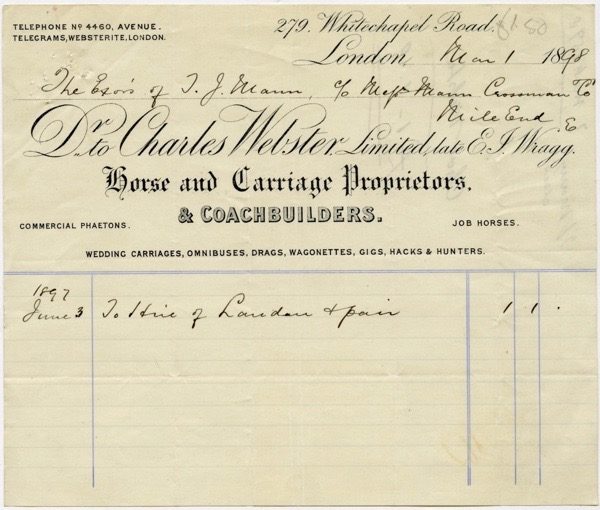 TELEPHONE Nº 4460, AVENUE.
TELEGRAMS, WEBSTERITE, LONDON.
279, Whitechapel Road.
£1.50
London, Mar 1 1898
The Exors of T. J. Mann, c/o Messrs Mann Crossman & Co
Mile End E
Dr. to Charles Webster, Limited, late E. J. Wragg.
Horse and Carriage Proprietors,
& COACHBUILDERS.
COMMERCIAL PHAETONS.
JOB HORSES.
WEDDING CARRIAGES, OMNIBUSES, DRAGS, WAGONETTES, GIGS, HACKS & HUNTERS.
1897
June 3 To Hire of Landau & pair 1 1 .